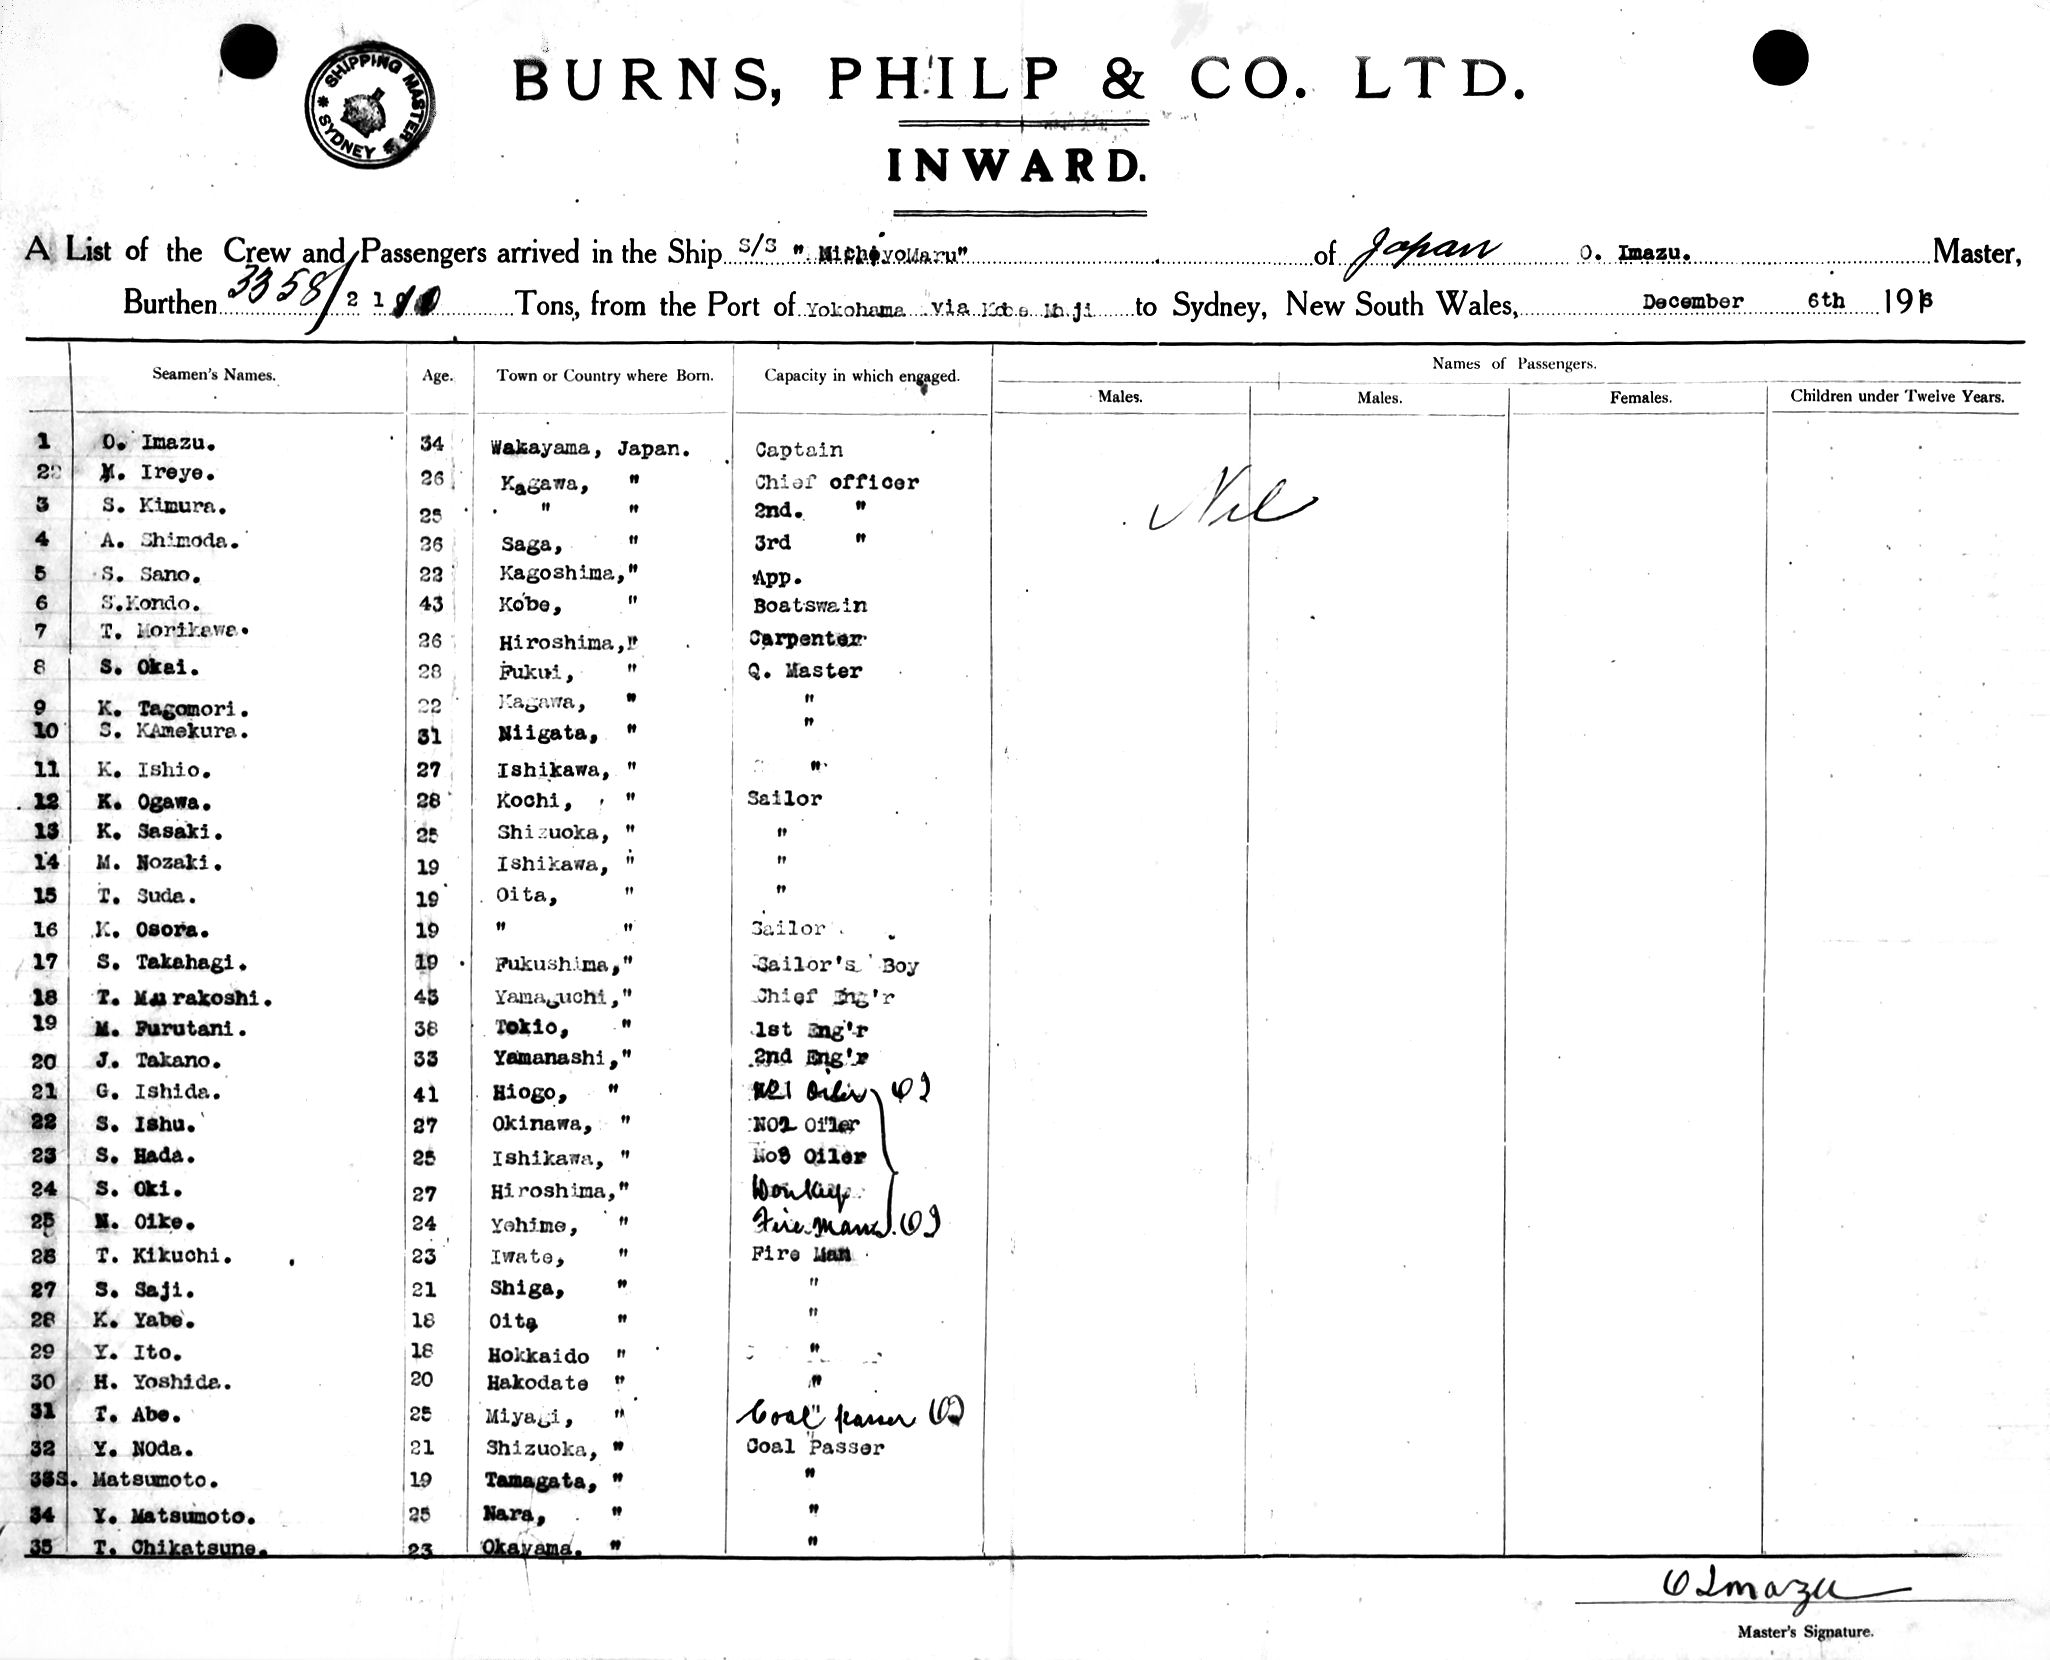 SHIPPING MASTER
SYDNEY
BURNS, PHILP & CO. LTD.
INWARD.
A List of the Crew and Passengers arrived in the Ship S/S " MichiyoMaru" of Japan O. Imazu. Master,
Burthen 3358/ Tons, from the Port of Yokohama via Kobe Moji to Sydney, New South Wales, December 6th 191
Seamen's Names. Age. Town or Country where Born. Capacity in which engaged. Names of Passengers.
Males. Males. Females. Children under Twelve Years.
1 O. Imazu. 34 Wakayama, Japan. Captain
2 M. Ireye. 26 Kagawa, " Chief officer
Nil
3 S. Kimura. 25 " " 2nd. "
4 A. Shimoda. 26 Saga, " 3rd "
5 S. Sano. 22 Kagoshima," App.
6 S.Kondo. 43 Kobe, " Boatswain
7 T. Morikawa. 26 Hiroshima," Carpenter
8 S. Okai. 28 Fukui, " Q. Master
9 K. Tagomori. 22 Kagawa, " "
10 S. KAmekura. 31 Niigata, " "
11 K. Ishio. 27 Ishikawa, " "
12 K. Ogawa. 28 Kochi, " Sailor
13 K. Sasaki. 25 Shizuoka, " "
14 M. Nozaki. 19 Ishikawa, " "
15 T. Suda. 19 Oita, " "
16 K. Osora. 19 " " Sailor
17 S. Takahagi. 19 Fukushima," Sailor's Boy
18 T. Murakoshi. 43 Yamaguchi," Chief Eng'r
19 M. Furutani. 38 Tokio, " 1st Eng'r
20 J. Takano. 33 Yamanashi," 2nd Eng'r
21 G. Ishida. 41 Hiogo, " No1 Oiler OI
22 S. Ishu. 27 Okinawa, " NO2 Oiler
23 S. Hada. 25 Ishikawa, " No3 Oiler
24 S. Oki. 27 Hiroshima," Donkey
25 N. Oike. 24 Yehime, " Fire Man OI
26 T. Kikuchi. 23 Iwate, " Fire Man
27 S. Saji. 21 Shiga, " "
28 K. Yabe. 18 Oita " "
29 Y. Ito. 18 Hokkaido " "
30 H. Yoshida. 20 Hakodate " "
31 T. Abe. 25 Miyagi, " Coal passer OI
32 Y. NOda. 21 Shizuoka, " Coal Passer
33S. Matsumoto. 19 Tamagata, " "
34 Y. Matsumoto. 25 Nara, " "
35 T. Chikatsune. 23 Okayama. " "
O Imazu
Master's Signature.